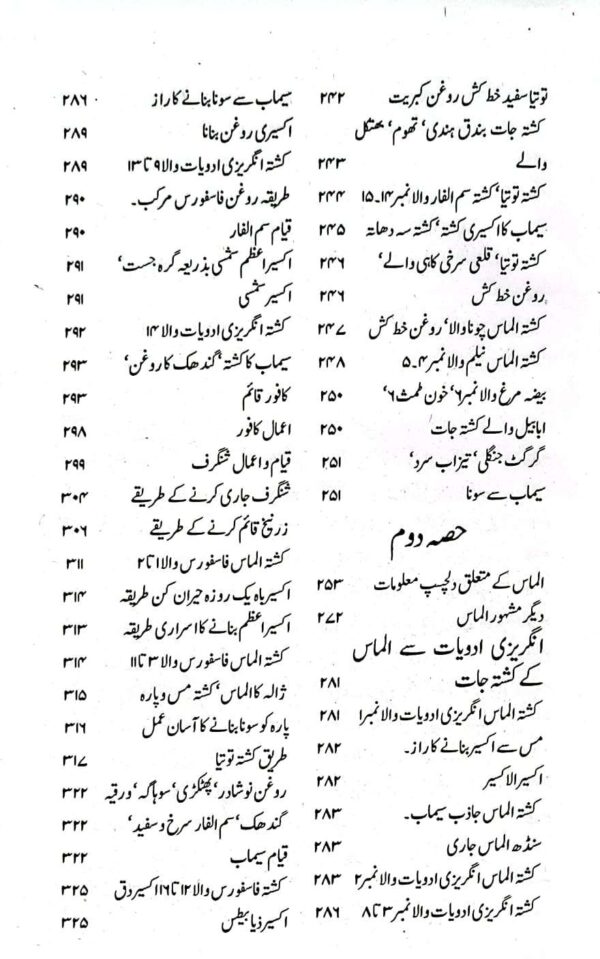 توتیا سفید خط کش روغن کبریت ۲۴۲
کشتہ جات بندق ہندی‘ تھوم‘ بھتکل
والے ۲۴۳
کشتہ توتیا‘ کشتہ سم الفار والا نمبر ۱۴۔۱۵ ۲۴۴
سیماب کا اکسیری کشتہ‘ کشتہ سہ دھاتہ ۲۴۵
کشتہ توتیا‘ قلعی سرخی کاہی والے‘ ۲۴۶
روغن خط کش ۲۴۶
کشتہ الماس چونا والا‘ روغن خط کش ۲۴۷
کشتہ الماس نیلم والا نمبر ۴۔۵ ۲۴۸
بیضہ مرغ والا نمبر ۶‘ خون طمث ۶‘ ۲۵۰
ابابیل والے کشتہ جات ۲۵۰
گرگٹ جنگلی‘ تیزاب سرد‘ ۲۵۱
سیماب سے سونا ۲۵۱
حصہ دوم
الماس کے متعلق دلچسپ معلومات ۲۵۳
دیگر مشہور الماس ۲۷۲
انگریزی ادویات سے الماس
کے کشتہ جات ۲۸۱
کشتہ الماس انگریزی ادویات والا نمبر ۱ ۲۸۱
مس سے اکسیر بنانے کا راز۔ ۲۸۲
اکسیر الاکسیر ۲۸۲
کشتہ الماس جاذب سیماب۔ ۲۸۳
سنڈھ الماس جاری ۲۸۳
کشتہ الماس انگریزی ادویات والا نمبر ۲ ۲۸۳
کشتہ انگریزی ادویات والا نمبر ۳ تا ۸ ۲۸۶
سیماب سے سونا بنانے کا راز ۲۸۶
اکسیری روغن بنانا ۲۸۹
کشتہ انگریزی ادویات والا ۹ تا ۱۳ ۲۸۹
طریقہ روغن فاسفورس مرکب۔ ۲۹۰
قیام سم الفار ۲۹۰
اکسیر اعظم شمسی بذریعہ گرہ جست‘ ۲۹۱
اکسیر شمسی ۲۹۱
کشتہ انگریزی ادویات والا ۱۴ ۲۹۲
سیماب کا کشتہ‘ گندھک کا روغن‘ ۲۹۳
کافور قائم ۲۹۳
اعمال کافور ۲۹۸
قیام و اعمال شنگرف ۲۹۹
شنگرف جاری کرنے کے طریقے ۳۰۴
زرنیخ قائم کرنے کے طریقے ۳۰۶
کشتہ الماس فاسفورس والا ۱ تا ۲ ۳۱۱
اکسیر باہ یک روزہ حیران کن طریقہ ۳۱۴
اکسیر اعظم بنانے کا اسراری طریقہ ۳۱۳
کشتہ الماس فاسفورس والا ۳ تا ۱۱ ۳۱۴
ژالہ کا الماس‘ کشتہ مس و پارہ ۳۱۵
پارہ کو سونا بنانے کا آسان عمل ۳۱۶
طریق کشتہ توتیا ۳۱۷
روغن نوشادر‘ پھٹکڑی‘ سوہاگہ‘ ورقیہ ۳۲۲
گندھک‘ سم الفار سرخ و سفید‘ ۳۲۲
قیام سیماب ۳۲۲
کشتہ فاسفورس والا ۱۲ تا ۱۶ اکسیر دق ۳۲۵
اکسیر ذیابیطس ۳۲۵